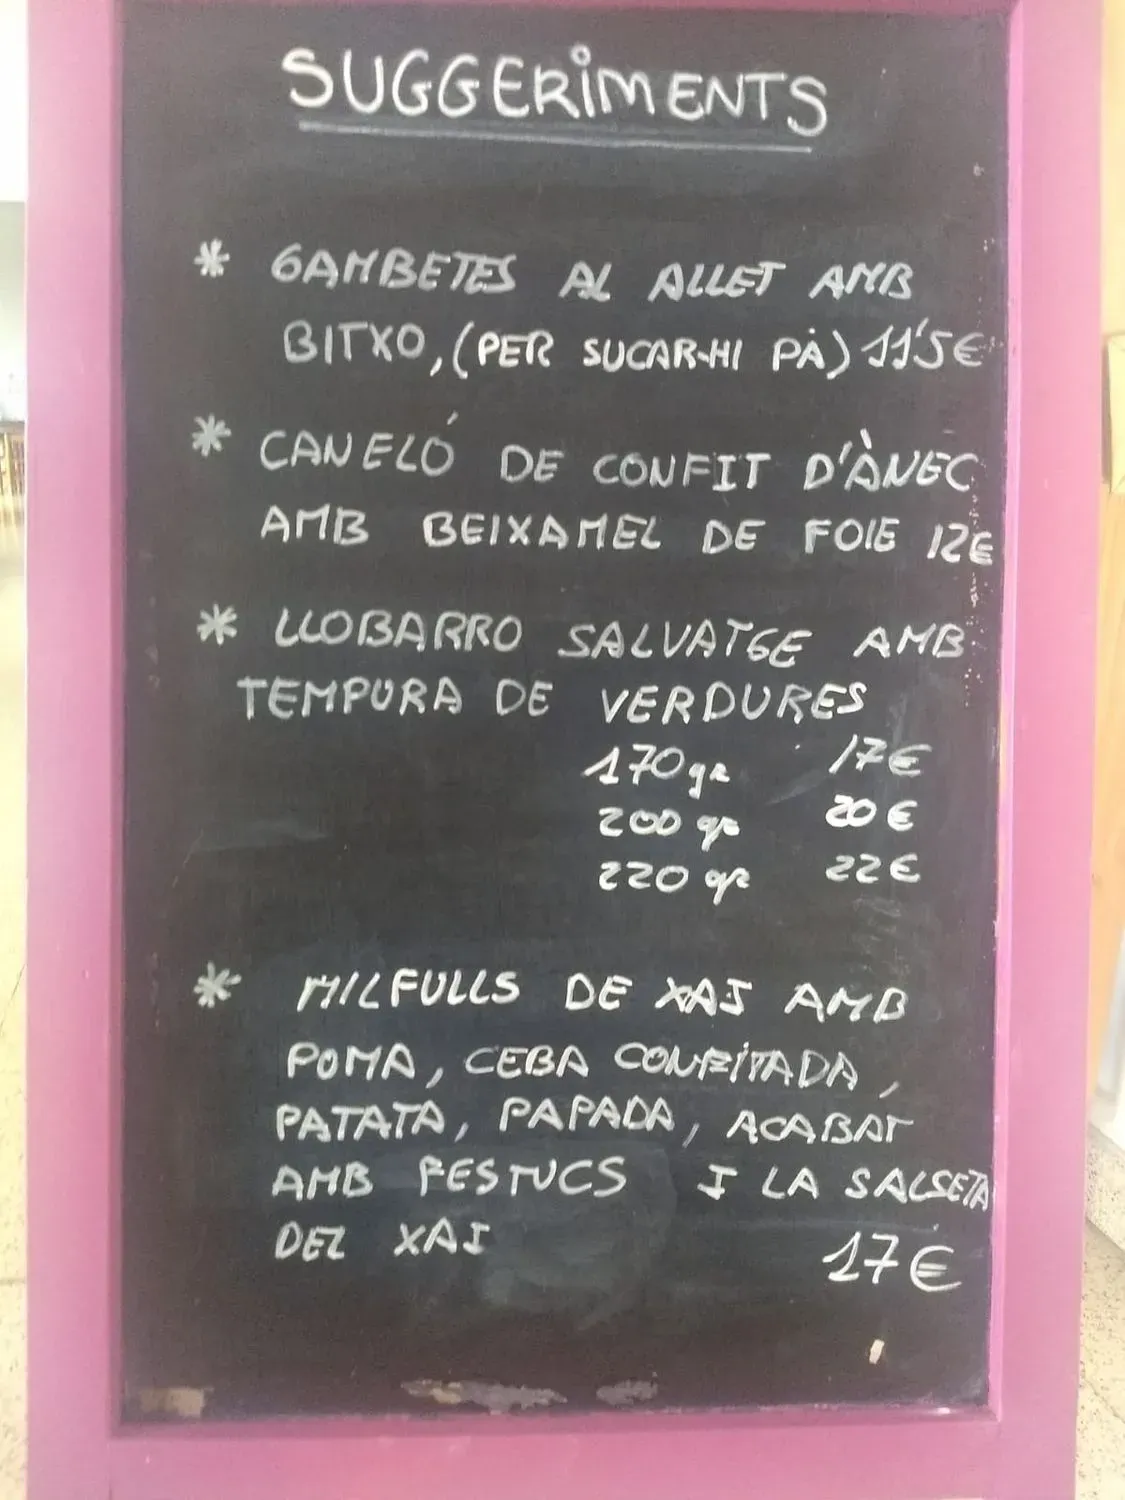 SUGGERIMENTS
* GAMBETES AL ALLET AMB
BITXO, (PER SUCAR-HI PÀ) 11'5€
* CANELÓ DE CONFIT D'ÀNEC
AMB BEIXAMEL DE FOIE 12€
* LLOBARRO SALVATGE AMB
TEMPURA DE VERDURES
170gr 17€
200 gr 20€
220 gr 22€
* MILFULLS DE XAI AMB
POMA, CEBA CONFITADA,
PATATA, PAPADA, ACABAT
AMB FESTUCS I LA SALSETA
DEL XAI 17€